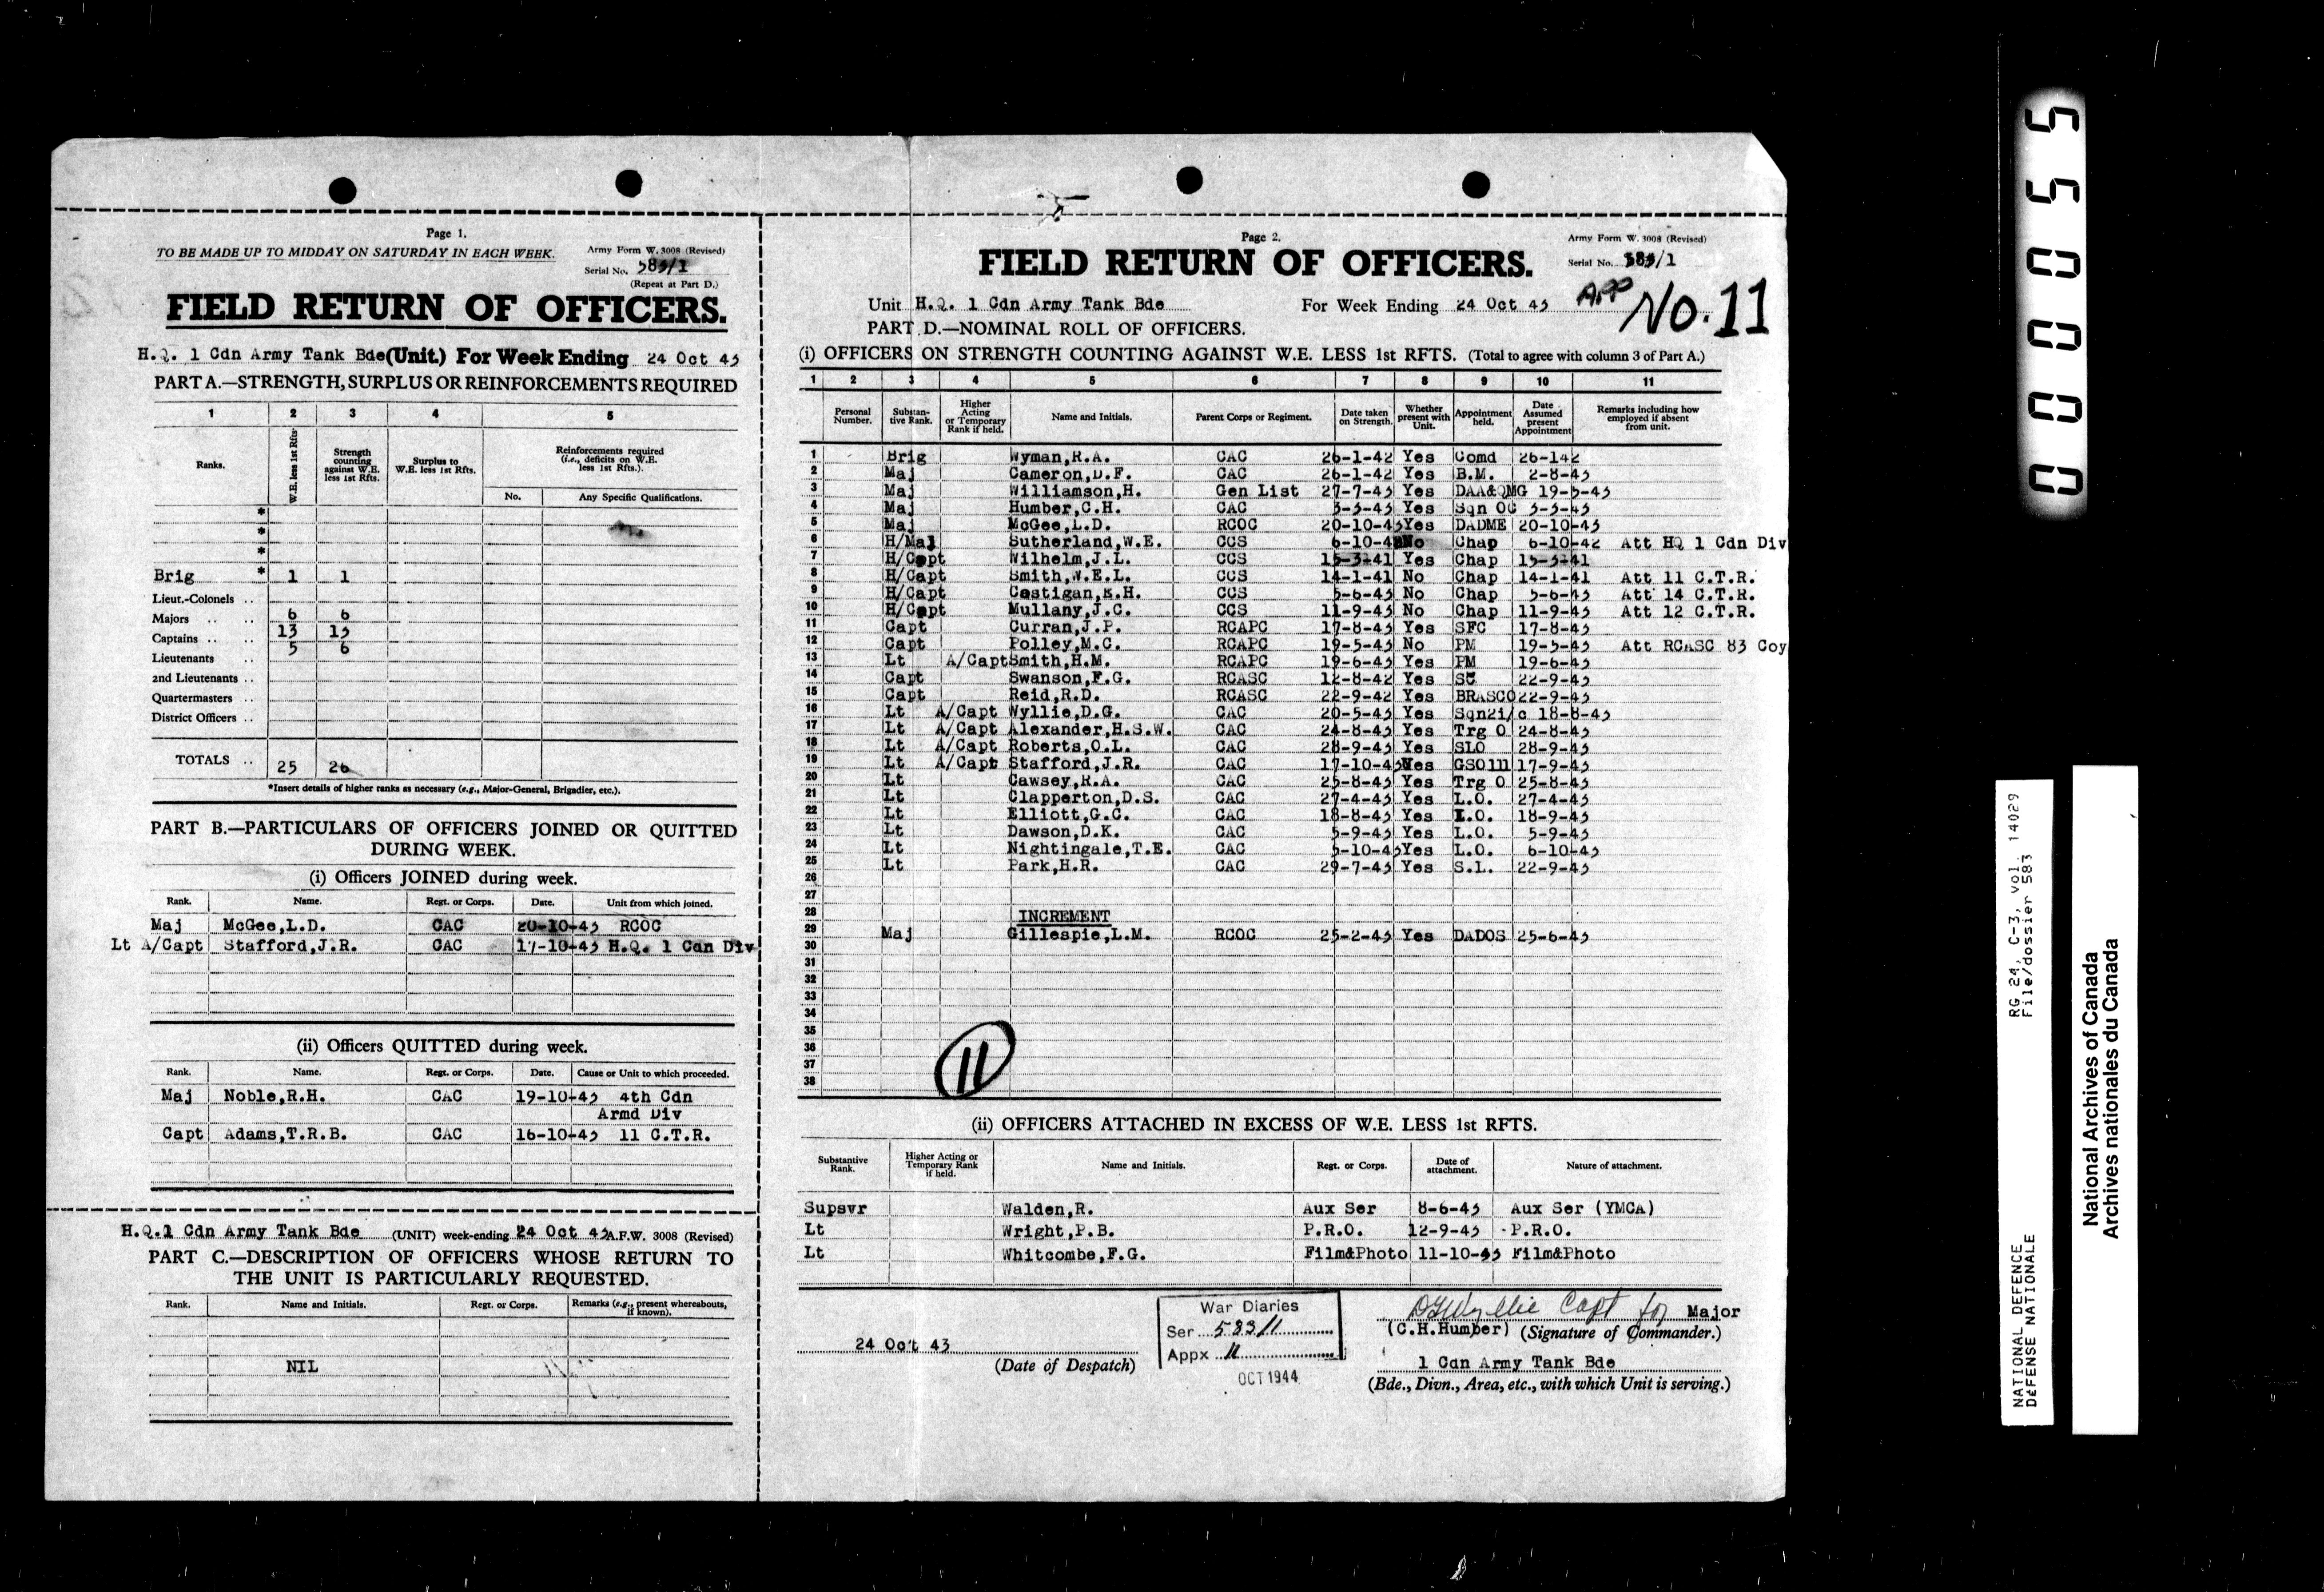 Page 1.
TO BE MADE UP TO MIDDAY ON SATURDAY IN EACH WEEK.
Army Form W. 3008 (Revised)
Serial No. 583/1
(Repeat at Part D.)
FIELD RETURN OF OFFICERS.
H.Q. 1 Cdn Army Tank Bde (Unit.) For Week Ending 24 Oct 43
PART A.—STRENGTH, SURPLUS OR REINFORCEMENTS REQUIRED
1 2 3 4 5
Ranks. W.E. less 1st Rfts. Strength counting against W.E. less 1st Rfts. Surplus to W.E. less 1st Rfts. Reinforcements required (i.e., deficits on W.E. less 1st Rfts.).
No. Any Specific Qualifications.
*
*
*
Brig * 1 1
Lieut.-Colonels ..
Majors .. .. 6 6
Captains .. .. 13 13
Lieutenants .. 5 6
2nd Lieutenants ..
Quartermasters ..
District Officers ..
TOTALS .. 25 26
*Insert details of higher ranks as necessary (e.g., Major-General, Brigadier, etc.).
PART B.—PARTICULARS OF OFFICERS JOINED OR QUITTED
DURING WEEK.
(i) Officers JOINED during week.
Rank. Name. Regt. or Corps. Date. Unit from which joined.
Maj McGee,L.D. CAC 20-10-43 RCOC
Lt A/Capt Stafford,J.R. CAC 17-10-43 H.Q. 1 Can Div
(ii) Officers QUITTED during week.
Rank. Name. Regt. or Corps. Date. Cause or Unit to which proceeded.
Maj Noble,R.H. CAC 19-10-43 4th Cdn
Armd Div
Capt Adams,T.R.B. CAC 16-10-43 11 C.T.R.
H.Q.1 Cdn Army Tank Bde (UNIT) week-ending 24 Oct 43 A.F.W. 3008 (Revised)
PART C.—DESCRIPTION OF OFFICERS WHOSE RETURN TO
THE UNIT IS PARTICULARLY REQUESTED.
Rank. Name and Initials. Regt. or Corps. Remarks (e.g., present whereabouts, if known).
NIL
Page 2.
Army Form W. 3008 (Revised)
FIELD RETURN OF OFFICERS.
Serial No. 583/1
APP No. 11
Unit H.Q. 1 Cdn Army Tank Bde For Week Ending 24 Oct 43
PART D.—NOMINAL ROLL OF OFFICERS.
(i) OFFICERS ON STRENGTH COUNTING AGAINST W.E. LESS 1st RFTS. (Total to agree with column 3 of Part A.)
1 2 3 4 5 6 7 8 9 10 11
Personal Number. Substantive Rank. Higher Acting or Temporary Rank if held. Name and Initials. Parent Corps or Regiment. Date taken on Strength. Whether present with Unit. Appointment held. Date Assumed present Appointment Remarks including how employed if absent from unit.
1 Brig Wyman,R.A. CAC 26-1-42 Yes Comd 26-142
2 Maj Cameron,D.F. CAC 26-1-42 Yes B.M. 2-8-43
3 Maj Williamson,H. Gen List 27-7-43 Yes DAA&QMG 19-5-43
4 Maj Humber,C.H. CAC 3-3-43 Yes Sqn OC 3-3-43
5 Maj McGee,L.D. RCOC 20-10-43 Yes DADME 20-10-43
6 H/Maj Sutherland,W.E. CCS 6-10-42 No Chap 6-10-42 Att HQ 1 Cdn Div
7 H/Capt Wilhelm,J.L. CCS 15-3-41 Yes Chap 15-3-41
8 H/Capt Smith,W.E.L. CCS 14-1-41 No Chap 14-1-41 Att 11 C.T.R.
9 H/Capt Costigan,K.H. CCS 5-6-43 No Chap 5-6-43 Att 14 C.T.R.
10 H/Capt Mullany,J.C. CCS 11-9-43 No Chap 11-9-43 Att 12 C.T.R.
11 Capt Curran,J.P. RCAPC 17-8-43 Yes SFC 17-8-43
12 Capt Polley,M.C. RCAPC 19-5-43 No PM 19-5-43 Att RCASC 83 Coy
13 Lt A/Capt Smith,H.M. RCAPC 19-6-43 Yes PM 19-6-43
14 Capt Swanson,F.G. RCASC 12-8-42 Yes SC 22-9-43
15 Capt Reid,R.D. RCASC 22-9-42 Yes BRASCO 22-9-43
16 Lt A/Capt Wyllie,D.G. CAC 20-5-43 Yes Sqn2i/c 18-8-43
17 Lt A/Capt Alexander,H.S.W. CAC 24-8-43 Yes Trg O 24-8-43
18 Lt A/Capt Roberts,O.L. CAC 28-9-43 Yes SLO 28-9-43
19 Lt A/Capt Stafford,J.R. CAC 17-10-43 Yes GSO111 17-9-43
20 Lt Cawsey,R.A. CAC 25-8-43 Yes Trg O 25-8-43
21 Lt Clapperton,D.S. CAC 27-4-43 Yes L.O. 27-4-43
22 Lt Elliott,G.C. CAC 18-8-43 Yes I.O. 18-9-43
23 Lt Dawson,D.K. CAC 5-9-43 Yes L.O. 5-9-43
24 Lt Nightingale,T.E. CAC 5-10-43 Yes L.O. 6-10-43
25 Lt Park,H.R. CAC 29-7-43 Yes S.L. 22-9-43
26
27
28 INCREMENT
29 Maj Gillespie,L.M. RCOC 25-2-43 Yes DADOS 25-6-43
30
31
32
33
34
35
36
37
38
11
(ii) OFFICERS ATTACHED IN EXCESS OF W.E. LESS 1st RFTS.
Substantive Rank. Higher Acting or Temporary Rank if held. Name and Initials. Regt. or Corps. Date of attachment. Nature of attachment.
Supsvr Walden,R. Aux Ser 8-6-43 Aux Ser (YMCA)
Lt Wright,P.B. P.R.O. 12-9-43 P.R.O.
Lt Whitcombe,F.G. Film&Photo 11-10-43 Film&Photo
War Diaries
Ser 583/1
Appx 11
OCT 1944
24 Oct 43
(Date of Despatch)
DGWyllie Capt for Major
(C.H.Humber) (Signature of Commander.)
1 Cdn Army Tank Bde
(Bde., Divn., Area, etc., with which Unit is serving.)
000055
RG 24, C-3, vol. 14029
File/dossier 583
NATIONAL DEFENCE
DÉFENSE NATIONALE
National Archives of Canada
Archives nationales du Canada